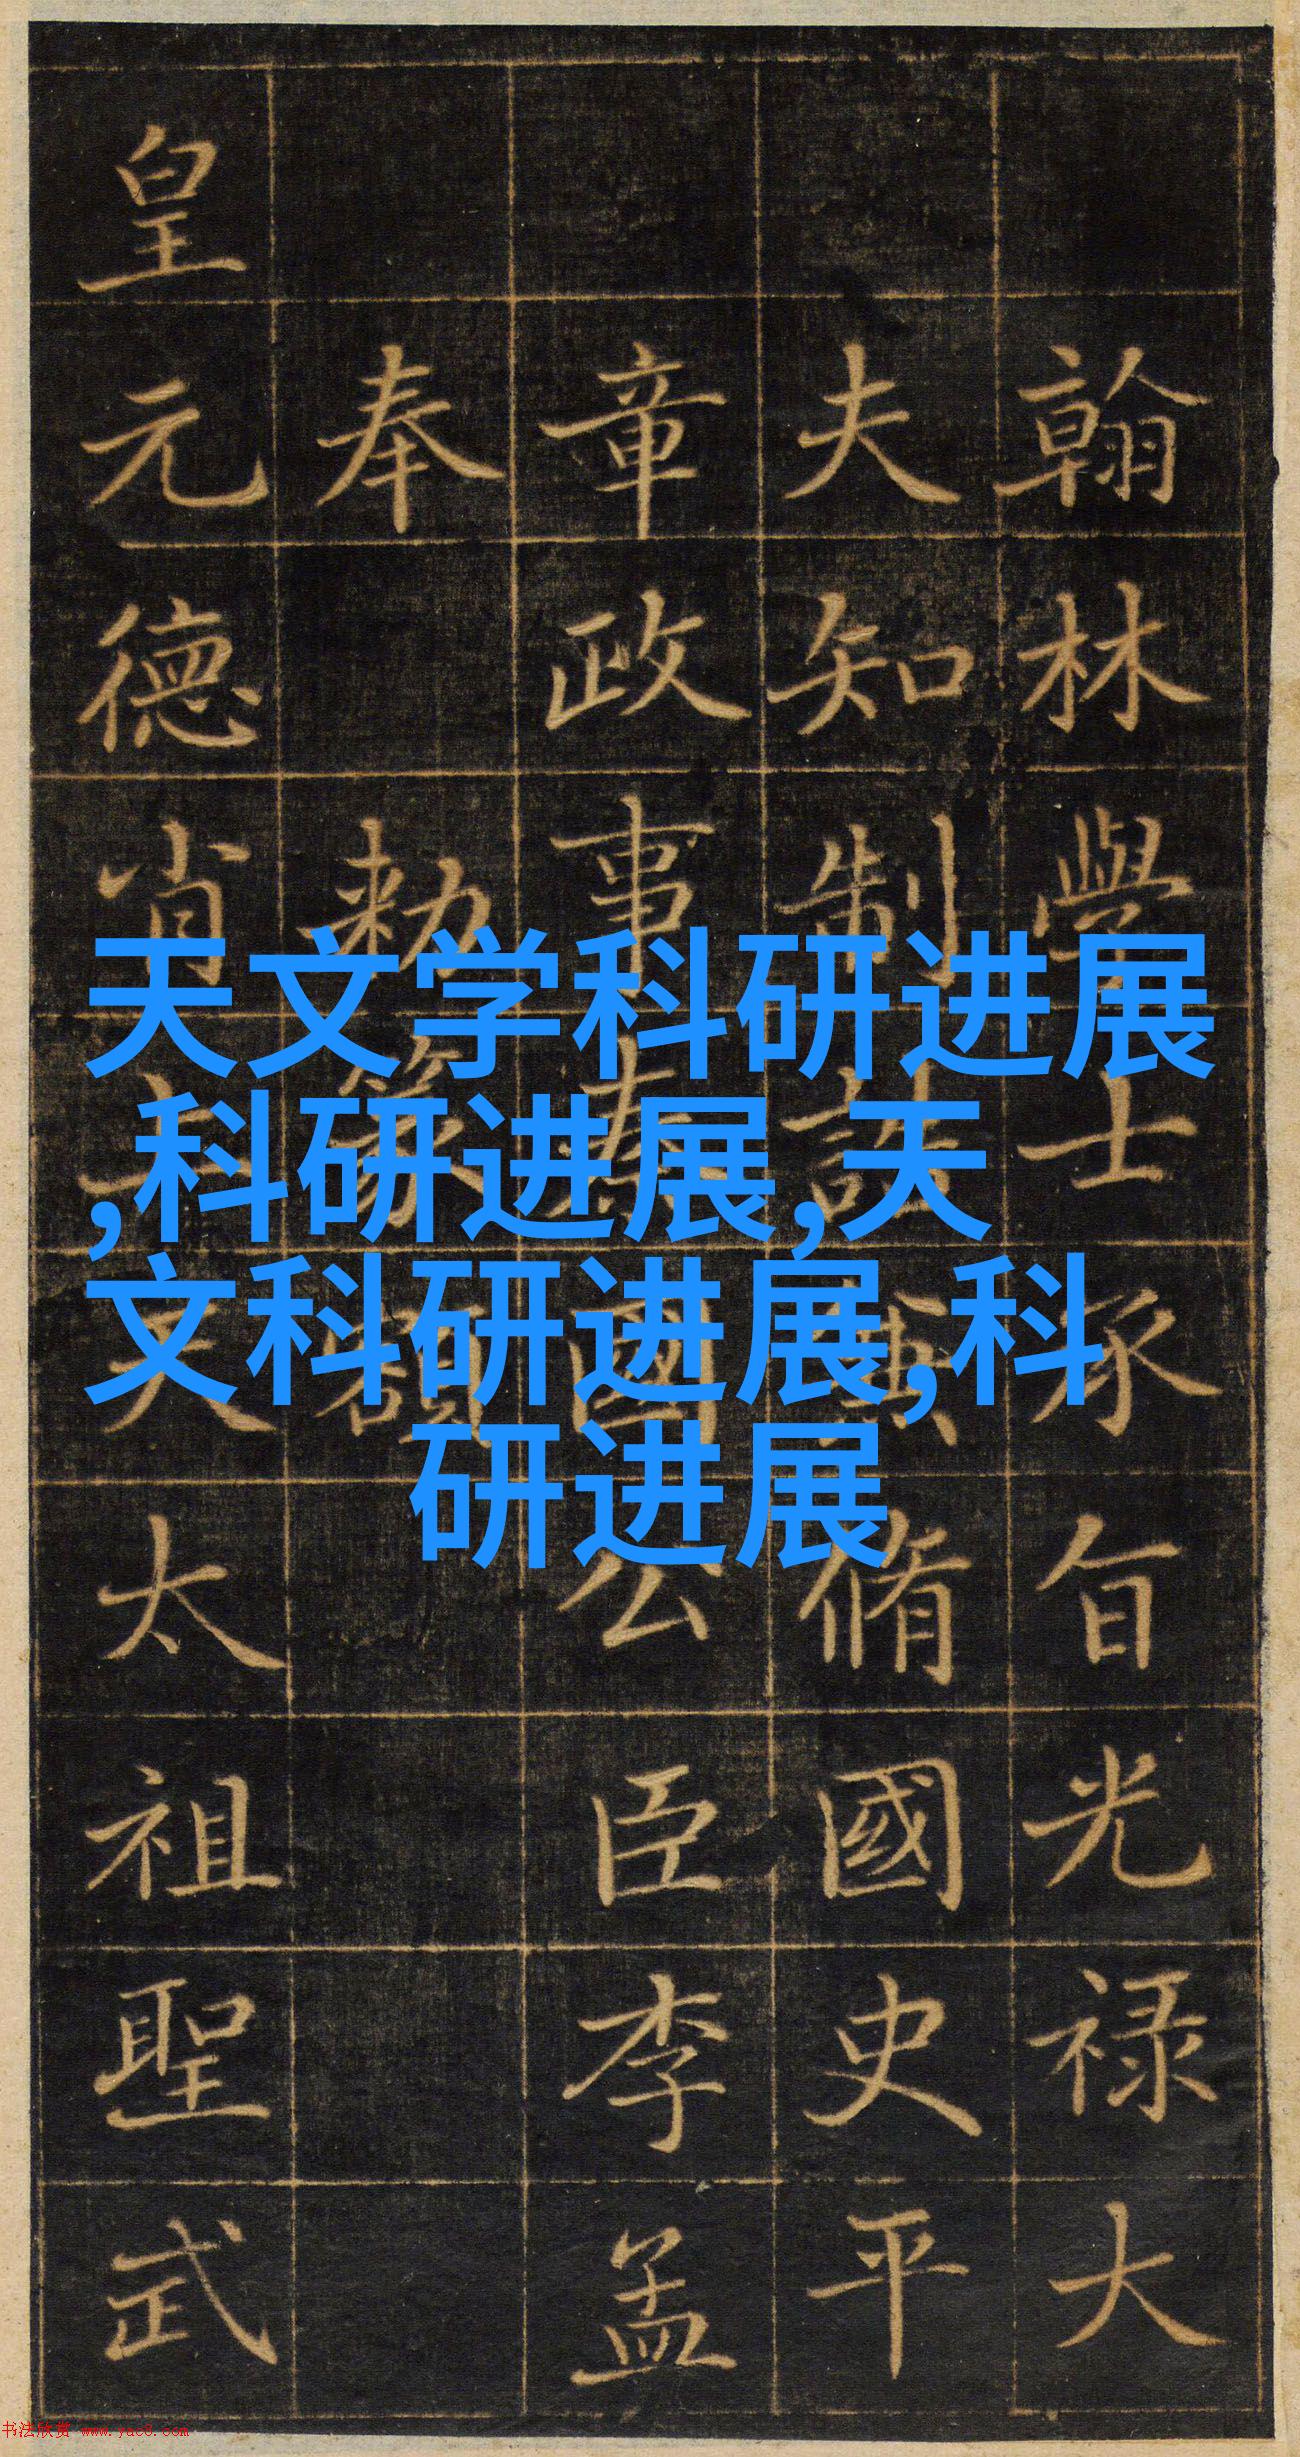 翰林學士承旨光禄大
夫知制誥兼脩國史平
章政事秦國公臣李孟
奉
勑篆額
皇元德肖上天太祖聖武
天文学科研进展
,科研进展,天
文科研进展,科
研进展
书法欣赏 www.yac8.com